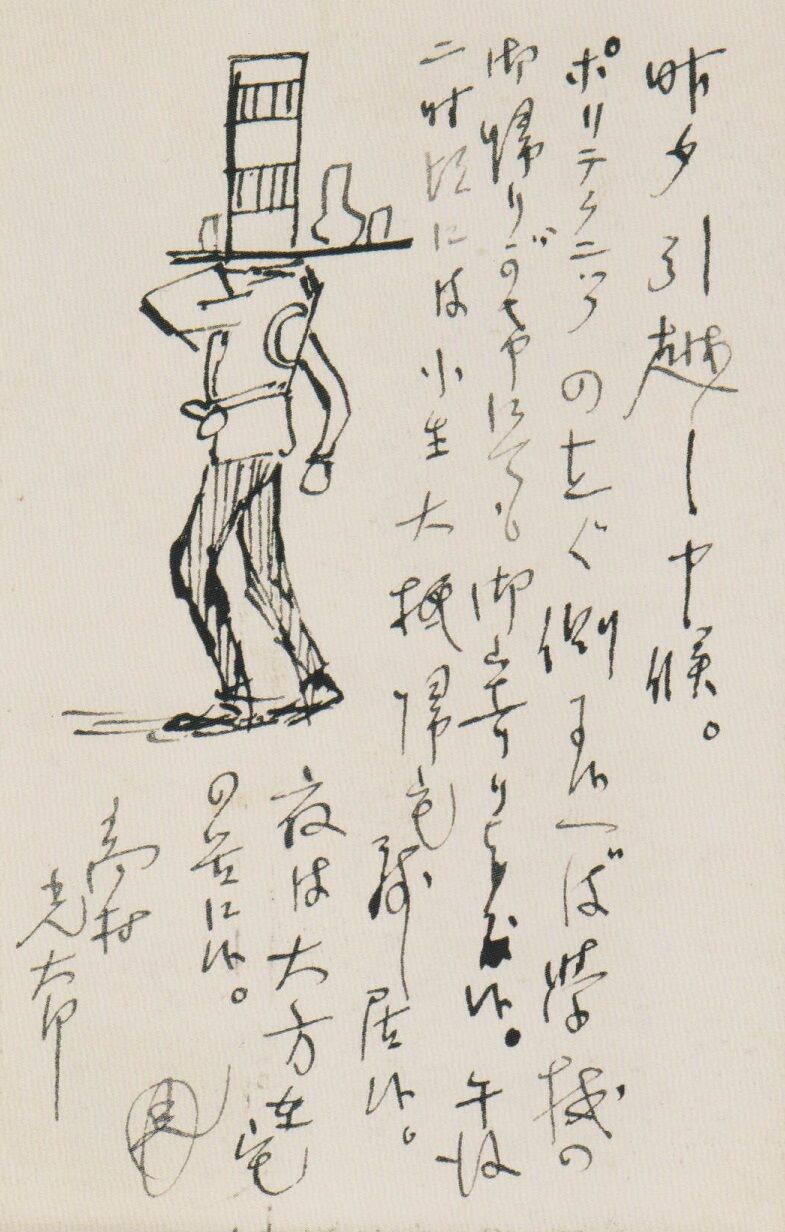 昨夕引越し申候。
ポリテクニツクのすぐ側に候へば学校の
御帰りにても御立寄り候。午後
二時頃には小生大抵帰宅致し居候。
夜は大方在宅
の筈に候。
高村
光太郎